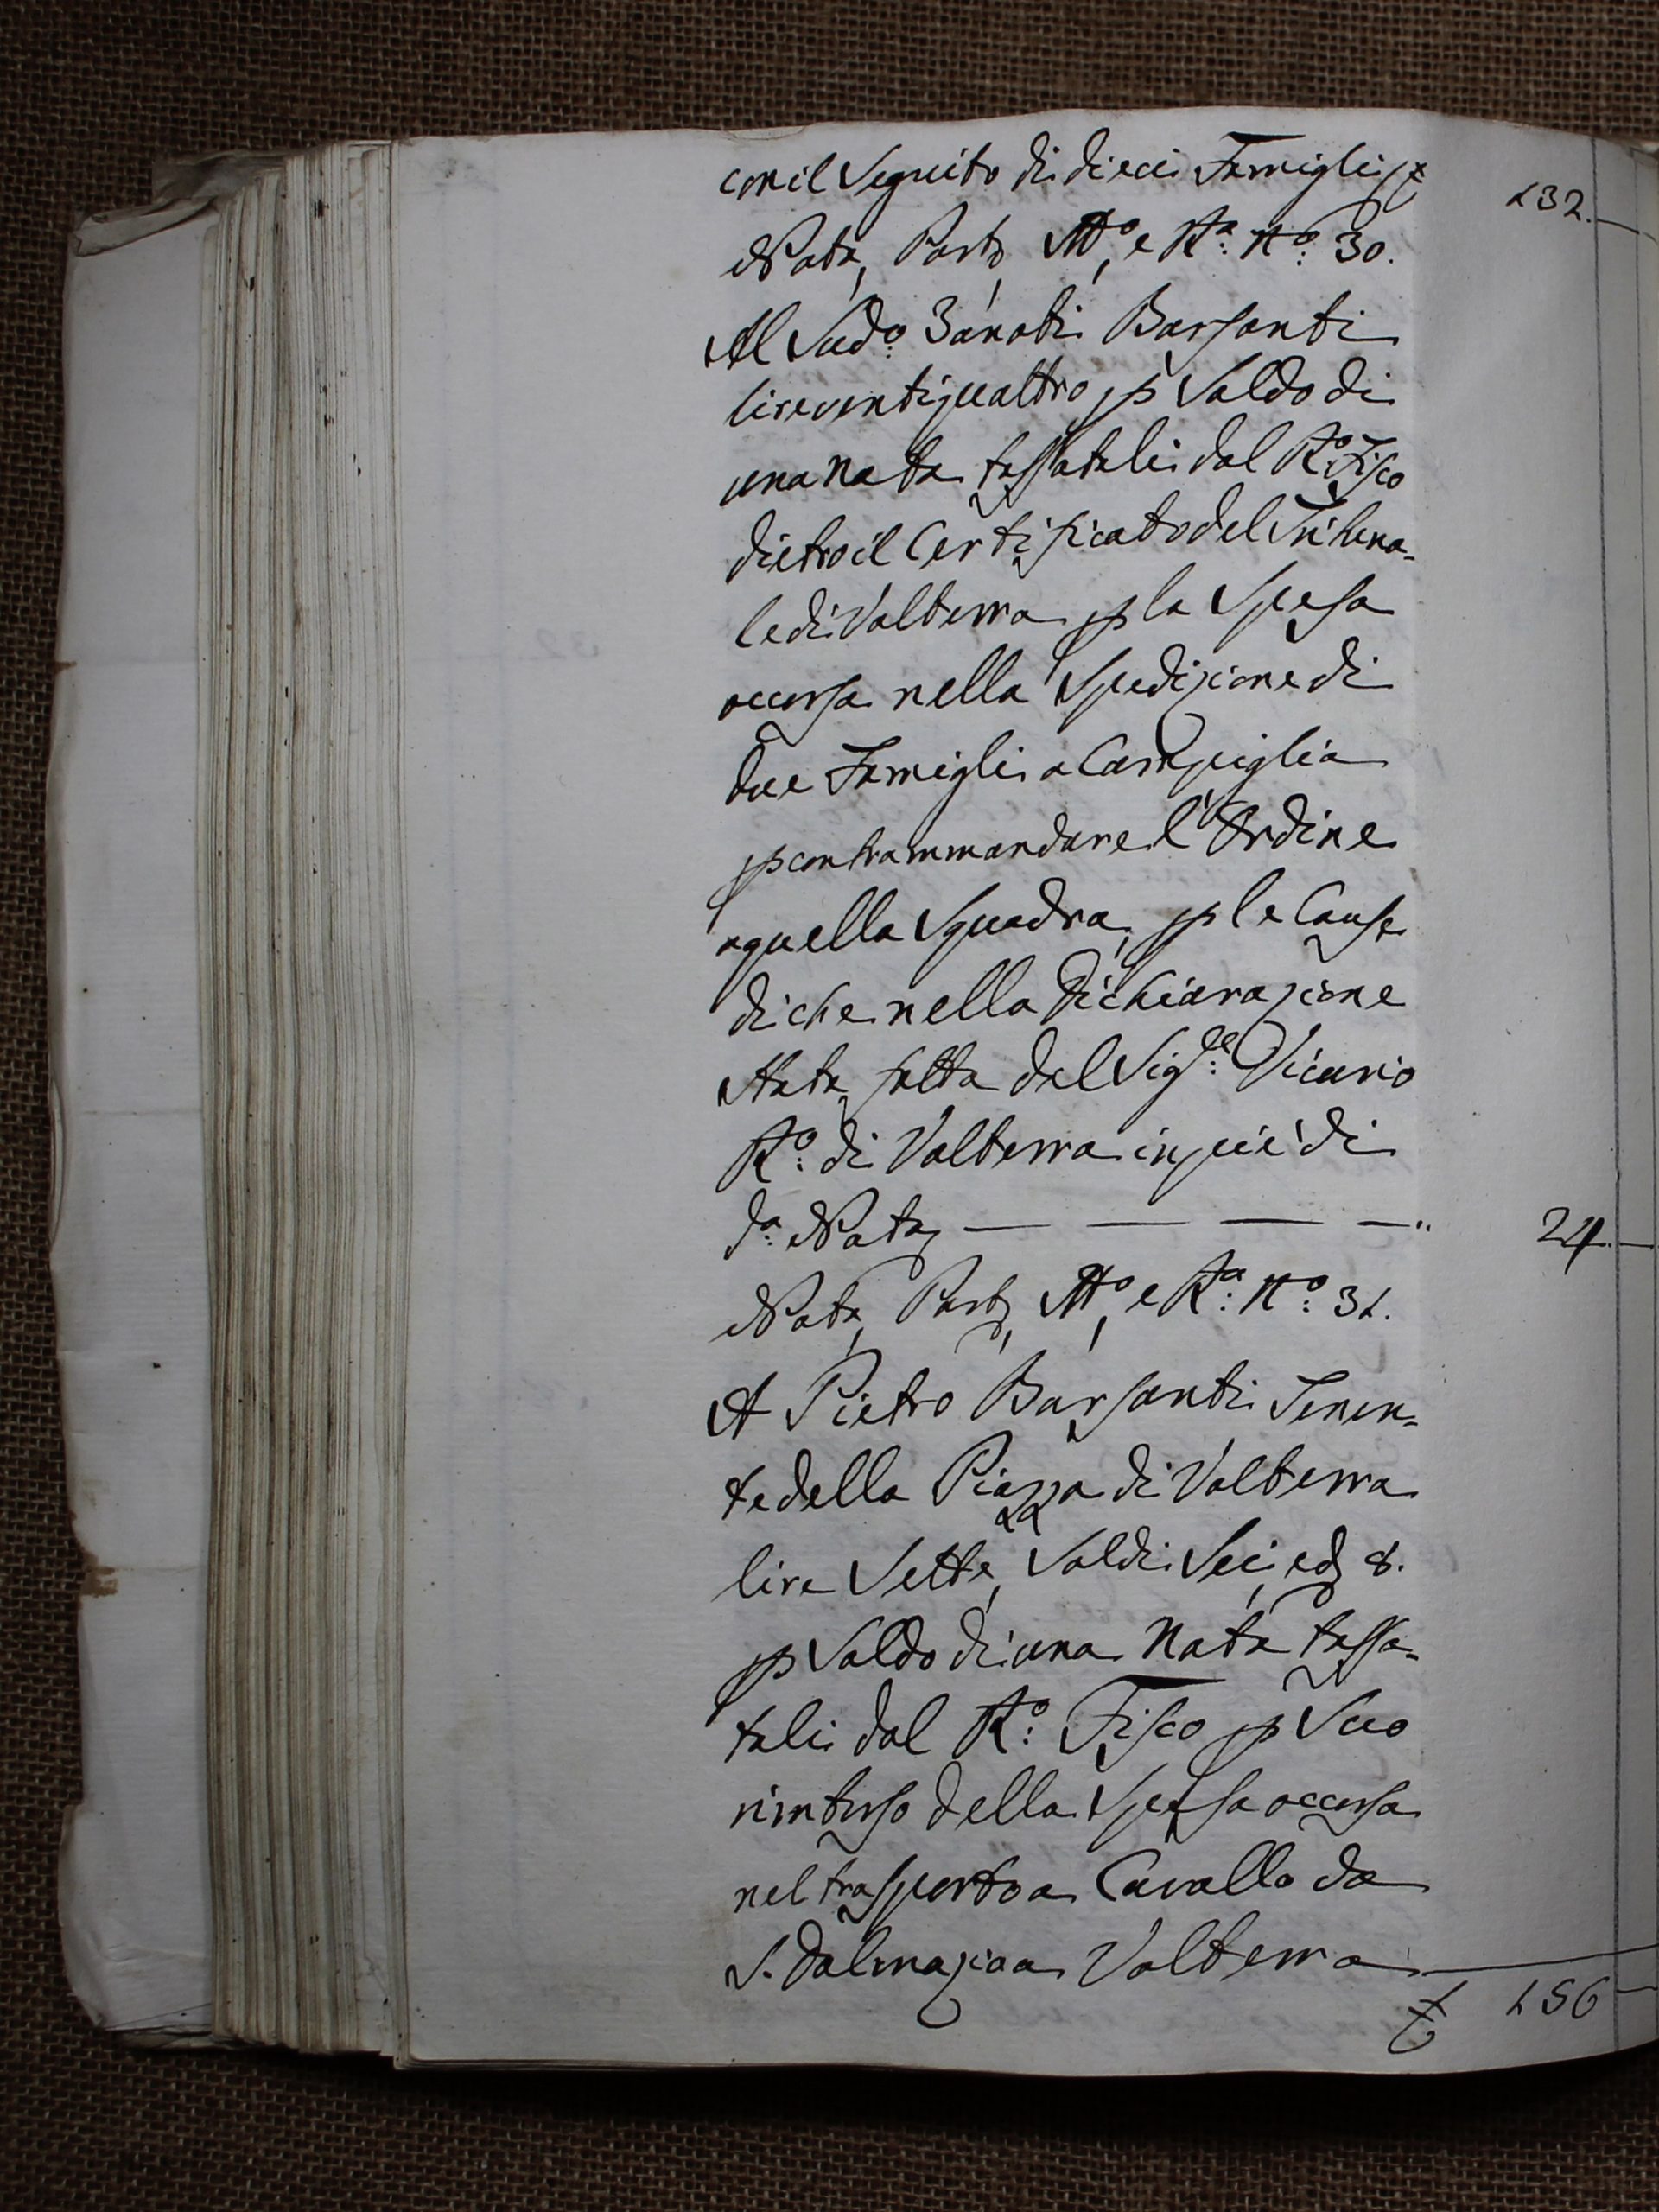 con il Seguito di dieci Famigli £ 132.
Nota, Part., M.º, e R.ª N.º 30.
Al Sud.º Zanobi Barsanti
lire ventiquattro p Saldo di
una Nota tassatali dal R.º Fisco
dietro il Certificato del Tribuna=
le di Volterra p la Spesa
occorsa nella Spedizione di
due Famigli a Campiglia
p contrammandare l'Ordine
a quella Squadra, p le Cause
di che nella Dichiarazione
stata fatta dal Sig.re Vicario
R.º di Volterra in piè di
d.ª Nota — — — — " 24.
Nota, Part., M.º, e R.ª N.º 31.
A Pietro Barsanti Tenen=
te della Piazza di Volterra
lire Sette, Soldi Sei, e d. 8.
p Saldo di una Nota tassa=
tali dal R.º Fisco p Suo
rimborso della Spesa occorsa
nel trasporto a Cavallo da
S. Dalmazio a Volterra
£ 156